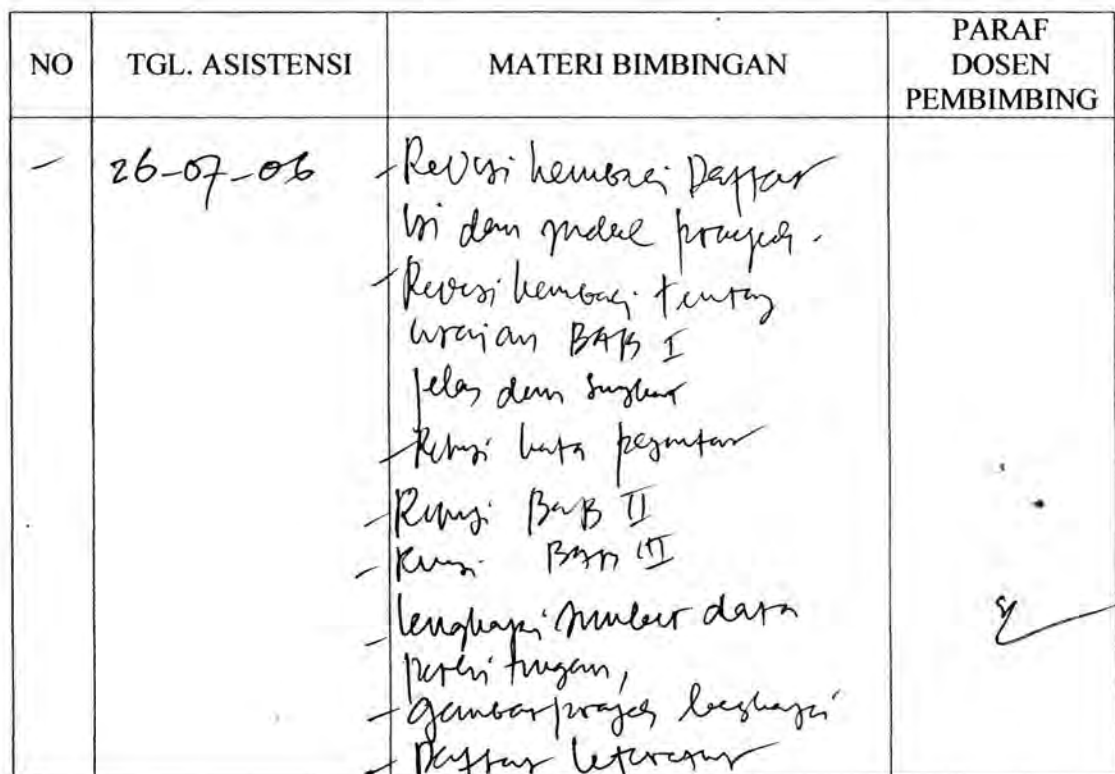 NO TGL. ASISTENSI MATERI BIMBINGAN PARAF DOSEN PEMBIMBING
- 26-07-06 - Revisi kembali Daftar
isi dan judul proyek.
- Revisi kembali tentang
uraian BAB I
jelas dan singkat
- Revisi kata pengantar
- Revisi BAB II
- Revisi BAB III
- lengkapi sumber data
perhitungan,
- gambar proyek lengkapi
- Daftar literatur